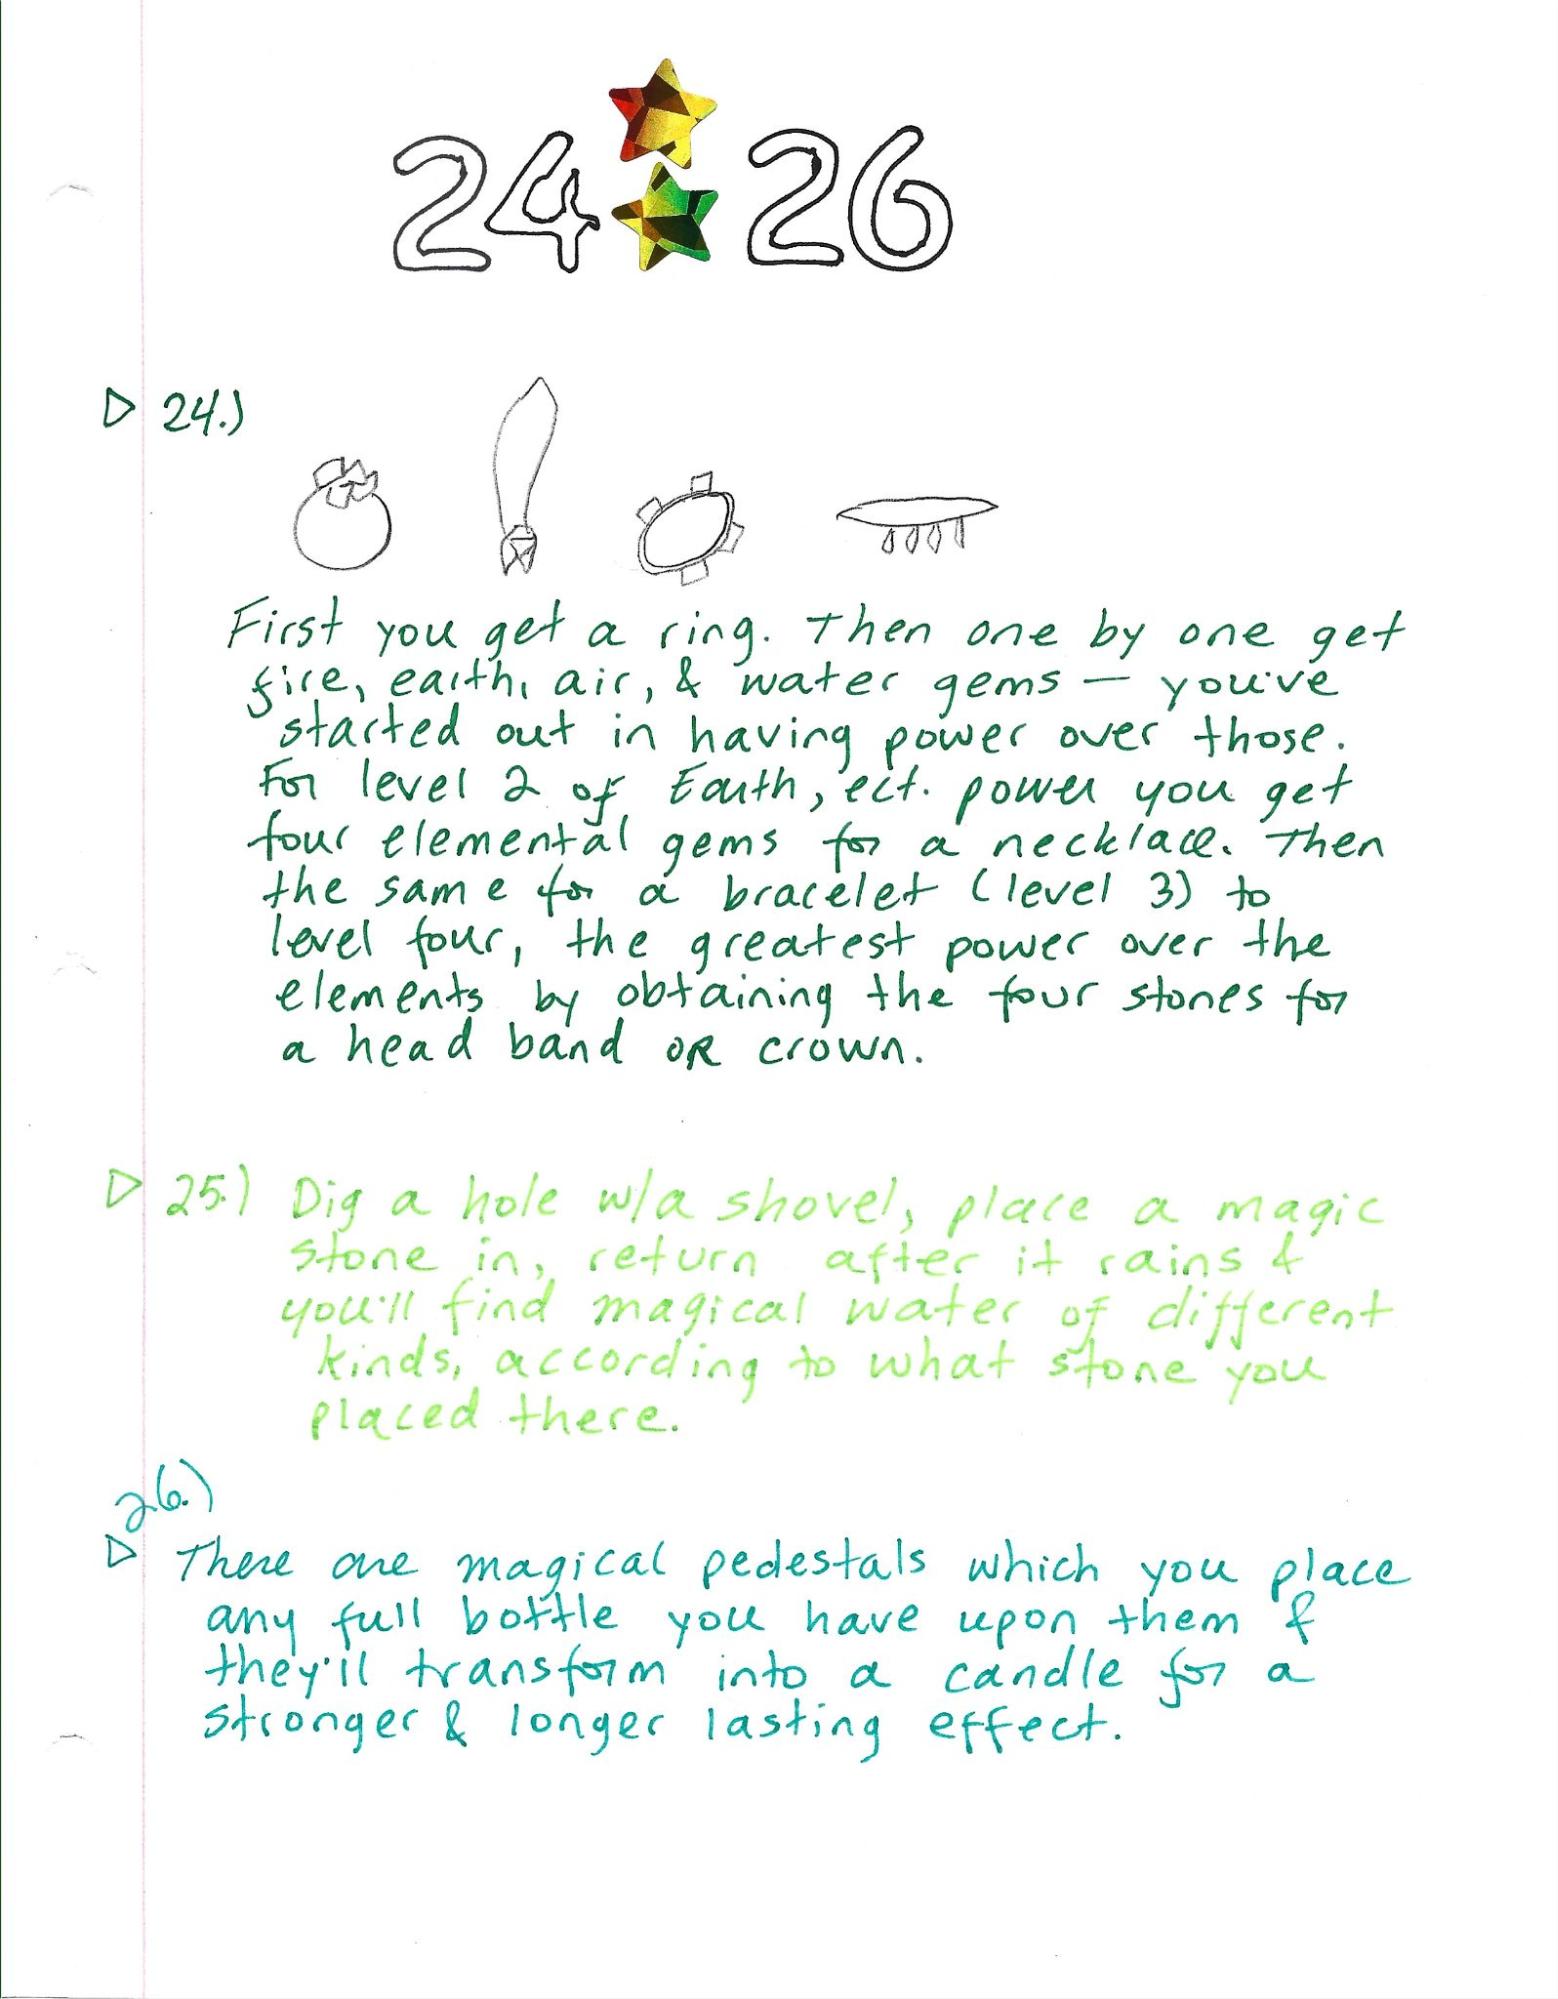 24 26
24.)
First you get a ring. Then one by one get
fire, earth, air, & water gems — you've
started out in having power over those.
For level 2 of Earth, ect. power you get
four elemental gems for a necklace. Then
the same for a bracelet (level 3) to
level four, the greatest power over the
elements by obtaining the four stones for
a head band OR crown.
25.) Dig a hole w/a shovel, place a magic
stone in, return after it rains &
you'll find magical water of different
kinds, according to what stone you
placed there.
26.)
There are magical pedestals which you place
any full bottle you have upon them &
they'll transform into a candle for a
stronger & longer lasting effect.